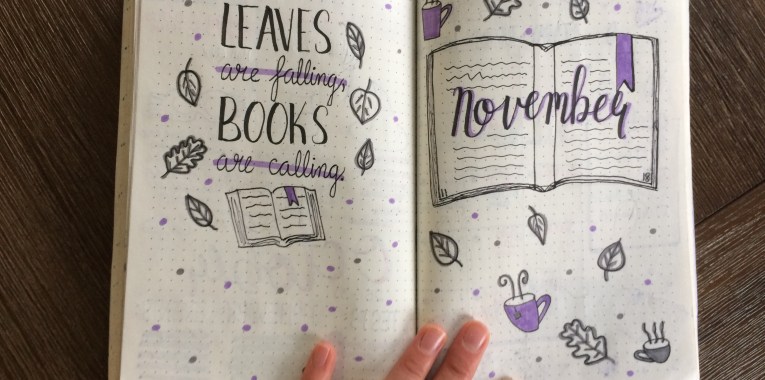 LEAVES
are falling,
BOOKS
are calling.
november